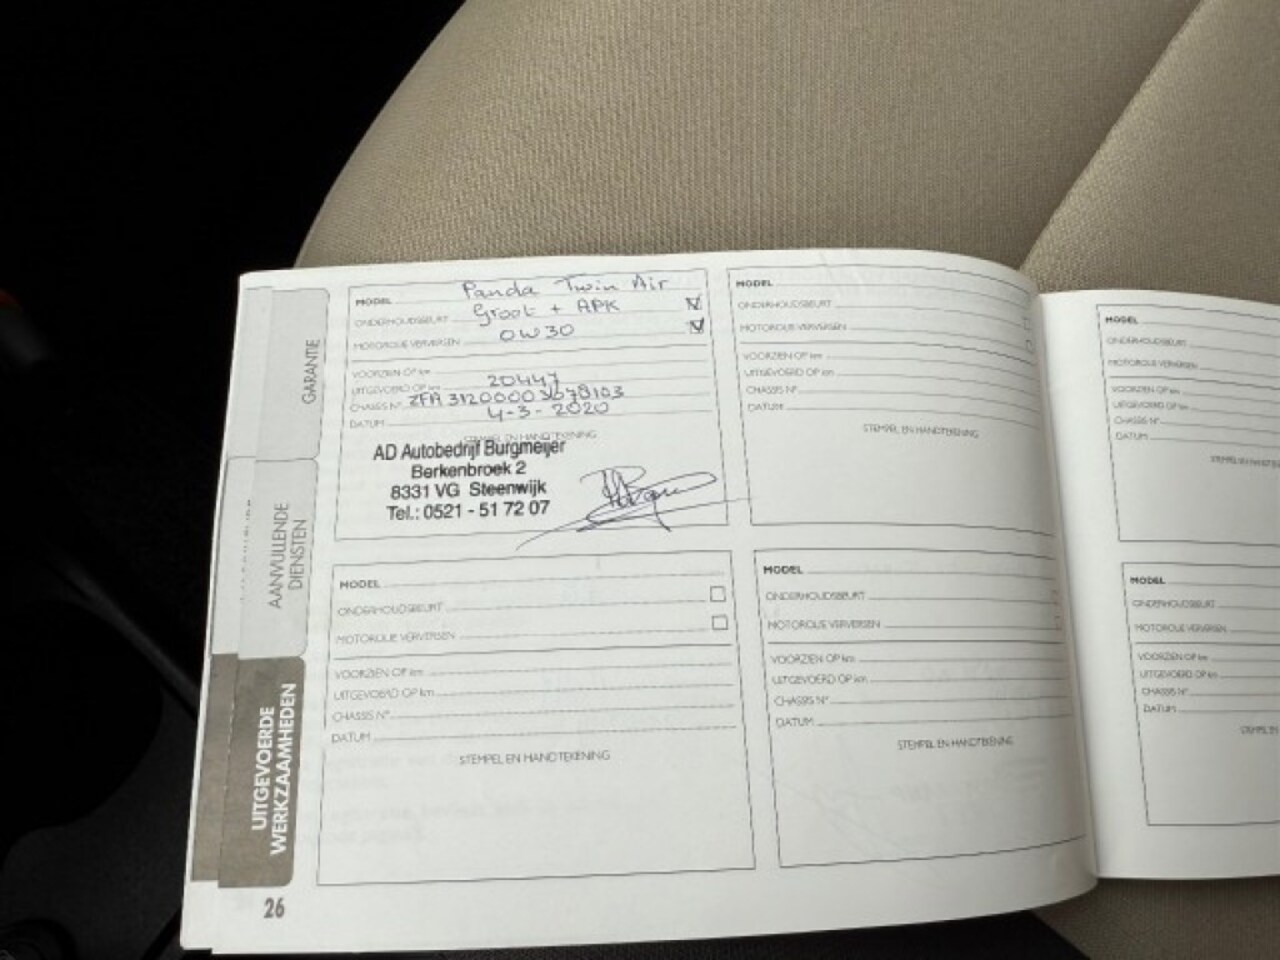 GARANTIE
AANVULLENDE
DIENSTEN
UITGEVOERDE
WERKZAAMHEDEN
26
MODEL Panda Twin Air
ONDERHOUDSBEURT Groot + APK
MOTOROLIE VERVERSEN 0W30
VOORZIEN OP km
UITGEVOERD OP km 20447
CHASSIS N° ZFA31200003678103
DATUM 4-3-2020
STEMPEL EN HANDTEKENING
AD Autobedrijf Burgmeijer
Berkenbroek 2
8331 VG Steenwijk
Tel.: 0521 - 51 72 07
MODEL
ONDERHOUDSBEURT
MOTOROLIE VERVERSEN
VOORZIEN OP km
UITGEVOERD OP km
CHASSIS N°
DATUM
STEMPEL EN HANDTEKENING
MODEL
ONDERHOUDSBEURT
MOTOROLIE VERVERSEN
VOORZIEN OP km
UITGEVOERD OP km
CHASSIS N°
DATUM
STEMPEL EN HANDTEKENING
MODEL
ONDERHOUDSBEURT
MOTOROLIE VERVERSEN
VOORZIEN OP km
UITGEVOERD OP km
CHASSIS N°
DATUM
STEMPEL EN HANDTEKENING
MODEL
ONDERHOUDSBEURT
MOTOROLIE VERVERSEN
VOORZIEN OP km
UITGEVOERD OP km
CHASSIS N°
DATUM
STEMPEL EN HANDTEKE
MODEL
ONDERHOUDSBEURT
MOTOROLIE VERVERSEN
VOORZIEN OP km
UITGEVOERD OP km
CHASSIS N°
DATUM